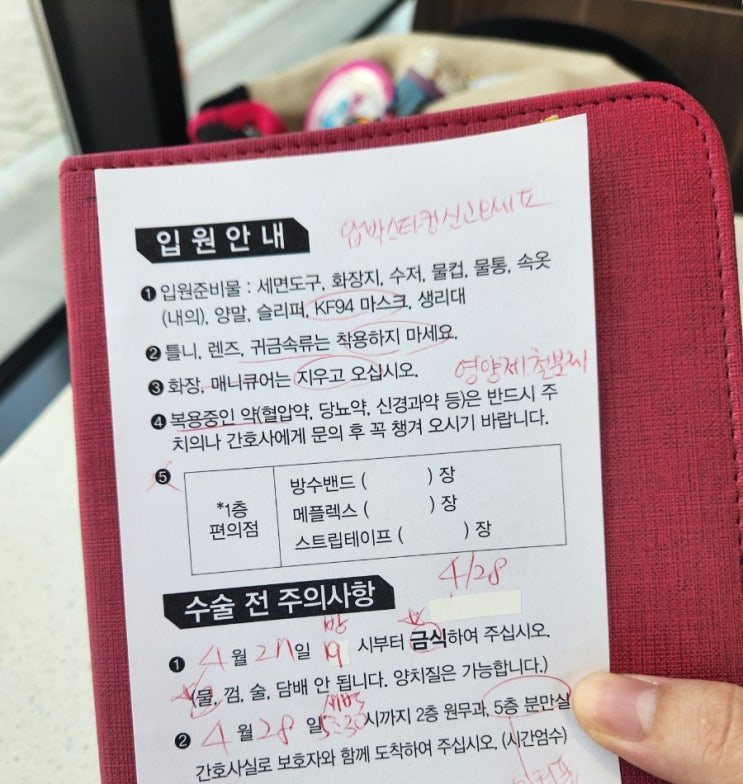 입원안내 압박스타킹신고오세요
❶ 입원준비물 : 세면도구, 화장지, 수저, 물컵, 물통, 속옷
(내의), 양말, 슬리퍼, KF94 마스크, 생리대
❷ 틀니, 렌즈, 귀금속류는 착용하지 마세요.
❸ 화장, 매니큐어는 지우고 오십시오. 영양제 철분제
❹ 복용중인 약(혈압약, 당뇨약, 신경과약 등)은 반드시 주
치의나 간호사에게 문의 후 꼭 챙겨 오시기 바랍니다.
❺
*1층
편의점
방수밴드 ( ) 장
메플렉스 ( ) 장
스트립테이프 ( ) 장
4/28
수술 전 주의사항
밤
❶ 4월 27일 19 시부터 금식하여 주십시오.
(물, 껌, 술, 담배 안 됩니다. 양치질은 가능합니다.)
새벽
❷ 4월 28일 5:30시까지 2층 원무과, 5층 분만실
간호사실로 보호자와 함께 도착하여 주십시오. (시간엄수)